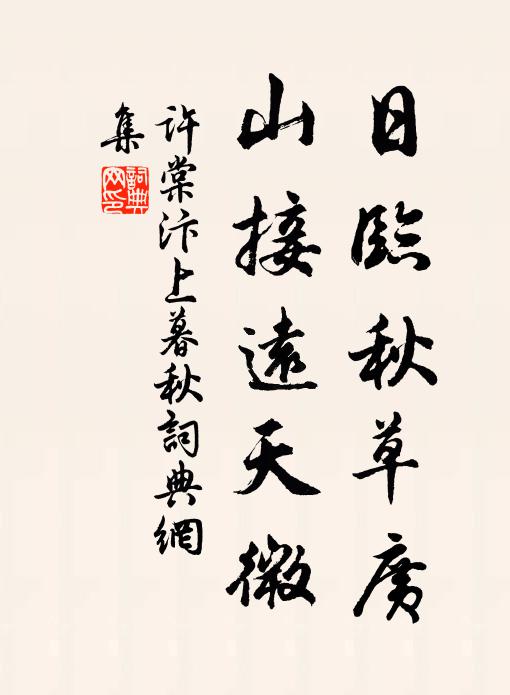 日臨秋草廣
山接遠天微
許棠汴上暮秋詞典網
集
詞典網印